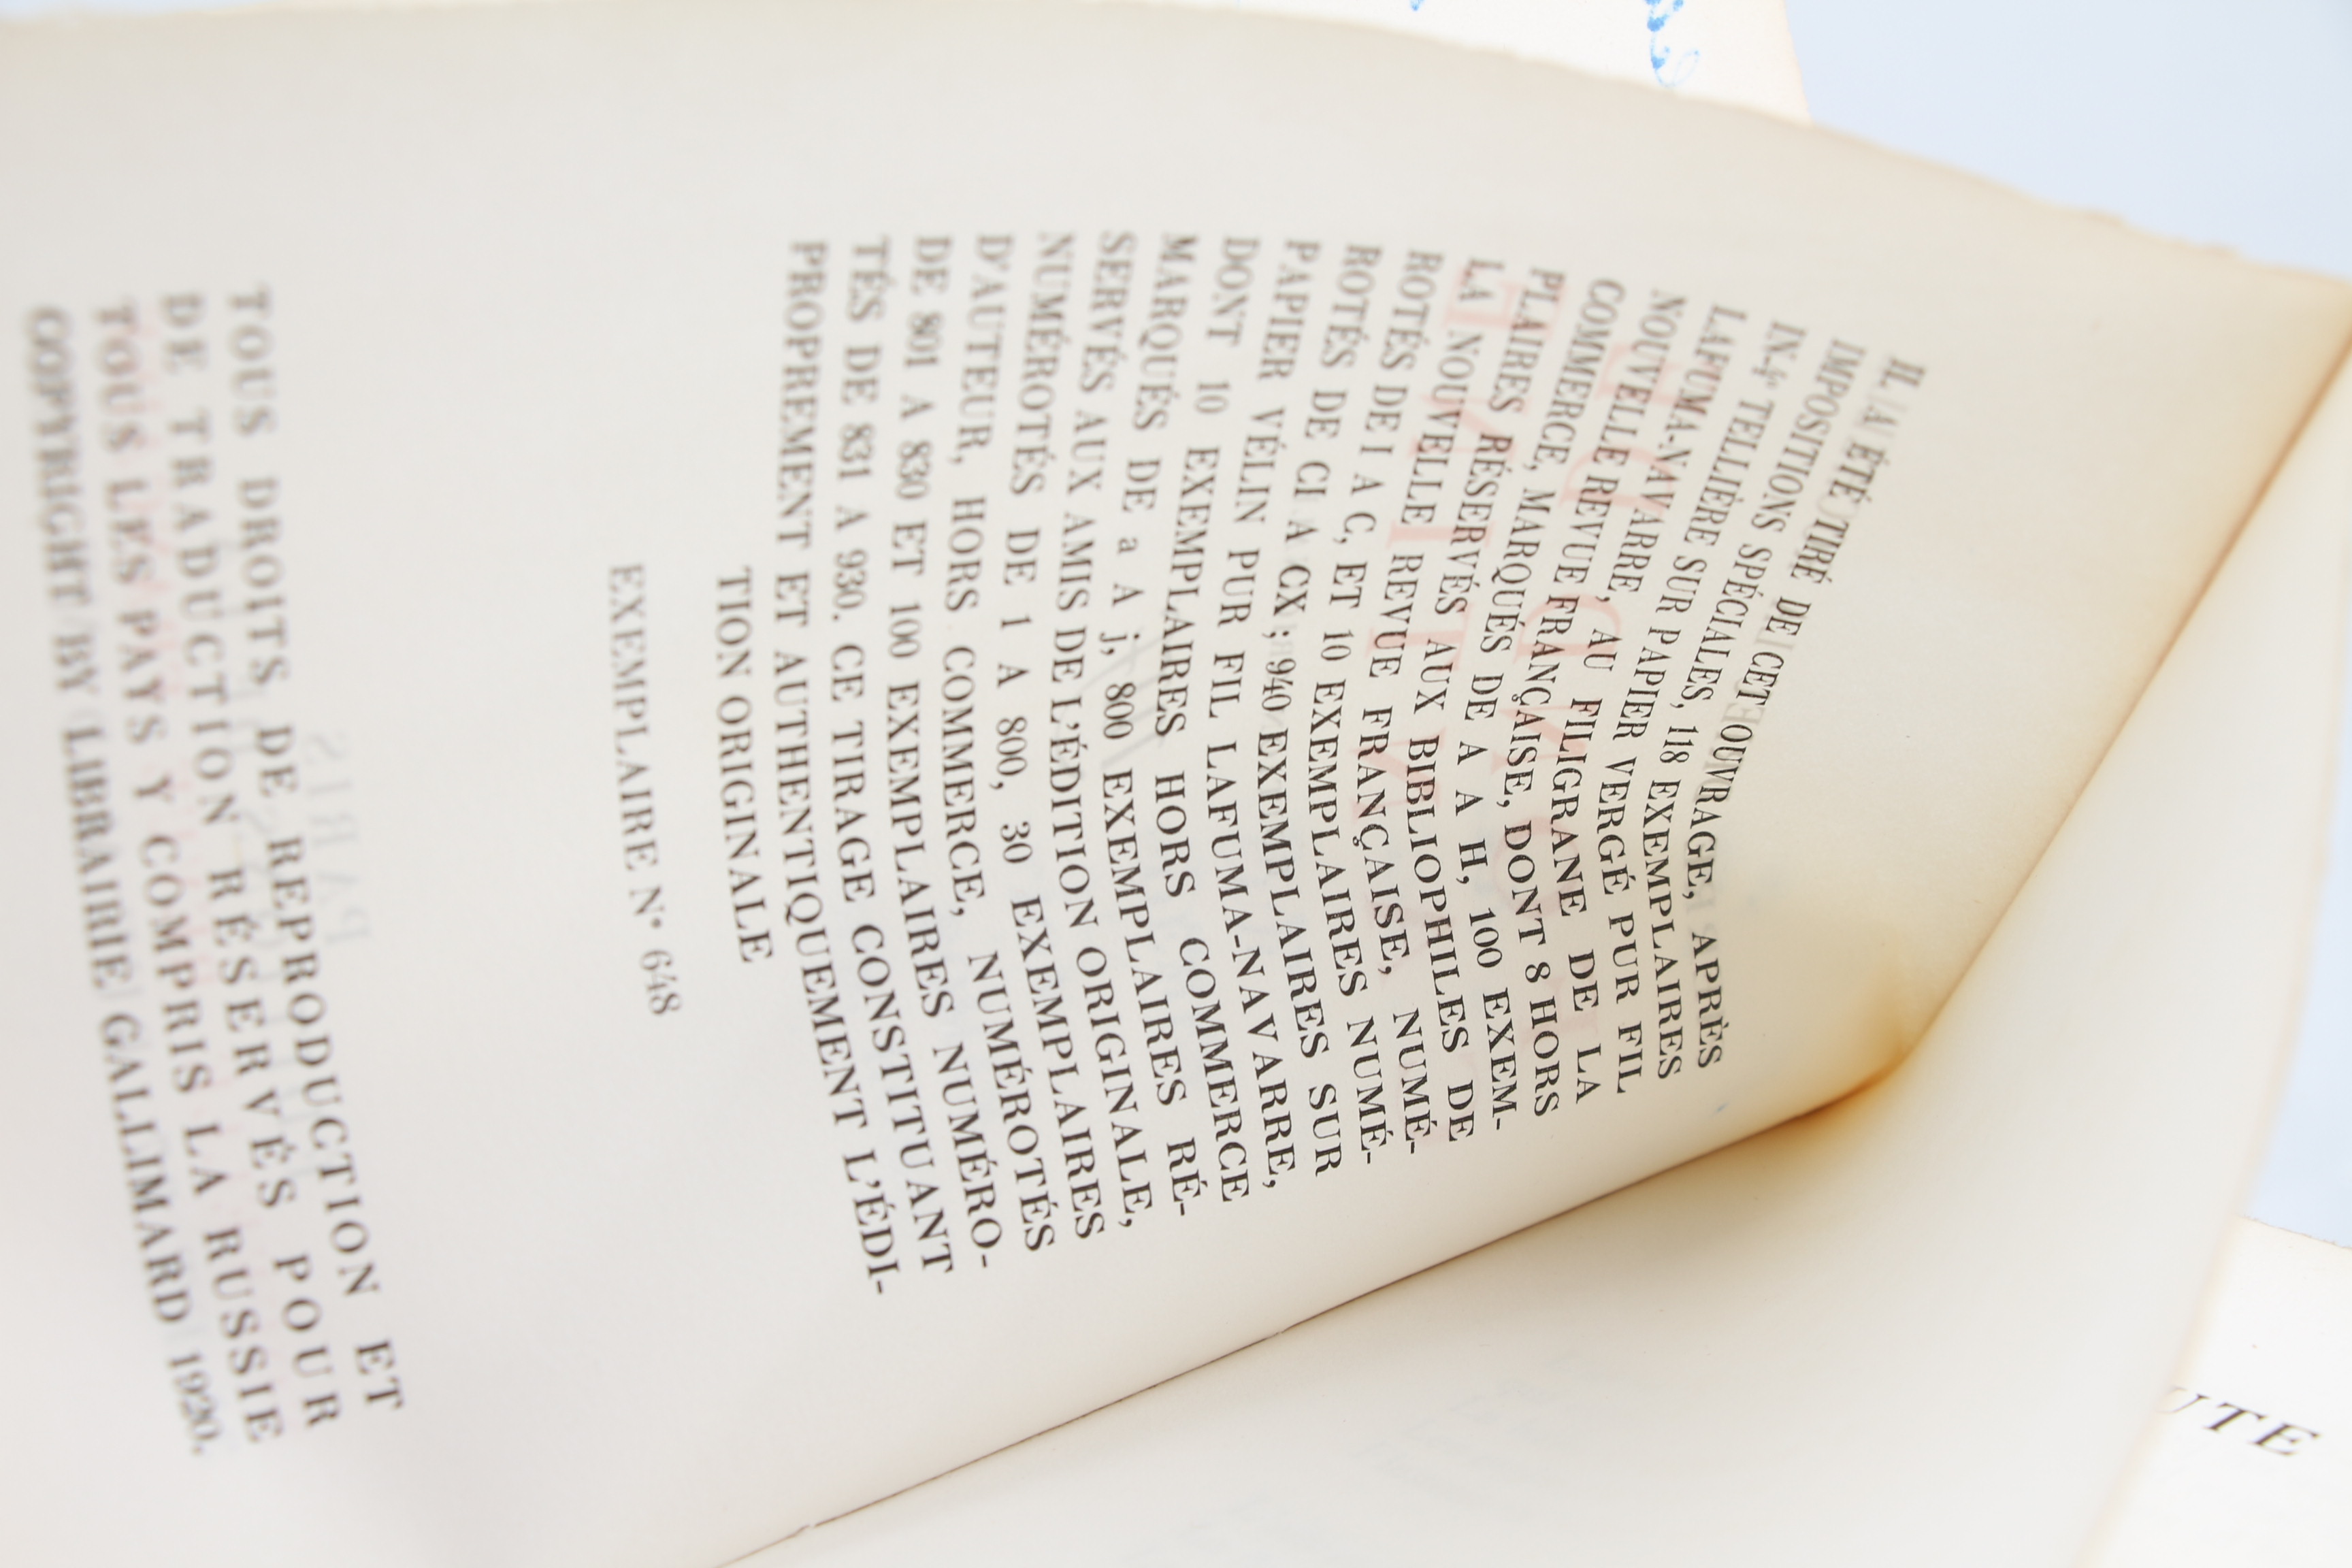 IL A ÉTÉ TIRÉ DE CET OUVRAGE, APRÈS
IMPOSITIONS SPÉCIALES, 118 EXEMPLAIRES
IN-4° TELLIÈRE SUR PAPIER VERGÉ PUR FIL
LAFUMA-NAVARRE, AU FILIGRANE DE LA
NOUVELLE REVUE FRANÇAISE, DONT 8 HORS
COMMERCE, MARQUÉS DE A A H, 100 EXEM-
PLAIRES RÉSERVÉS AUX BIBLIOPHILES DE
LA NOUVELLE REVUE FRANÇAISE, NUMÉ-
ROTÉS DE I A C, ET 10 EXEMPLAIRES NUMÉ-
ROTÉS DE CI A CX ; 940 EXEMPLAIRES SUR
PAPIER VÉLIN PUR FIL LAFUMA-NAVARRE,
DONT 10 EXEMPLAIRES HORS COMMERCE
MARQUÉS DE a A j, 800 EXEMPLAIRES RÉ-
SERVÉS AUX AMIS DE L'ÉDITION ORIGINALE,
NUMÉROTÉS DE 1 A 800, 30 EXEMPLAIRES
D'AUTEUR, HORS COMMERCE, NUMÉROTÉS
DE 801 A 830 ET 100 EXEMPLAIRES NUMÉRO-
TÉS DE 831 A 930. CE TIRAGE CONSTITUANT
PROPREMENT ET AUTHENTIQUEMENT L'ÉDI-
TION ORIGINALE
EXEMPLAIRE N° 648
TOUS DROITS DE REPRODUCTION ET
DE TRADUCTION RÉSERVÉS POUR
TOUS LES PAYS Y COMPRIS LA RUSSIE
COPYRIGHT BY LIBRAIRIE GALLIMARD 1920.
UTE